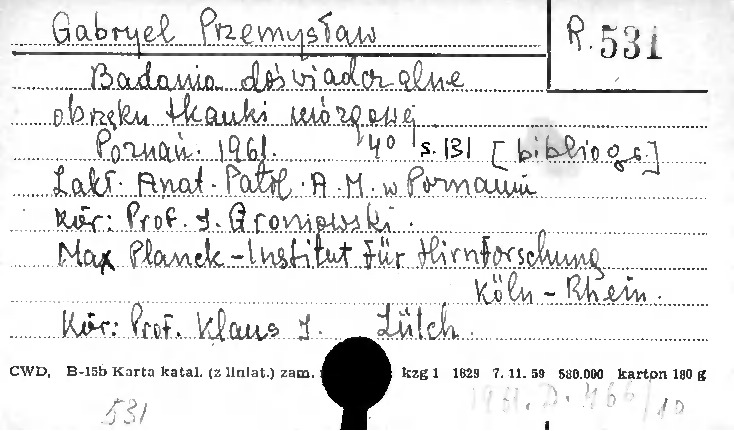 Gabryel Przemysław
R. 531
Badania doświadczalne
obrzęku tkanki mózgowej
Poznań. 1961. 40 s. 131 [bibliogr.]
Zakł. Anat. Patol. A.M. w Poznaniu
Kier: Prof. J. Groniowski.
Max Planck-Institut für Hirnforschung
Köln-Rhein.
Kier: Prof. Klaus J. Zülch.
CWD, B-15b Karta katal. (z liniat.) zam. kzg 1 1629 7. 11. 59 580.000 karton 180 g
531 1961. D. 466/10